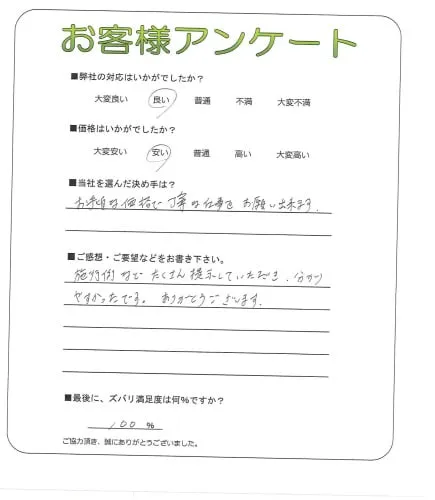 お客様アンケート
■弊社の対応はいかがでしたか？
大変良い 良い 普通 不満 大変不満
■価格はいかがでしたか？
大変安い 安い 普通 高い 大変高い
■当社を選んだ決め手は？
お手頃な価格で丁寧な仕事をお願い出来ます。
■ご感想・ご要望などをお書き下さい。
施行例などたくさん提示していただき、分かり
やすかったです。ありがとうございます。
■最後に、ズバリ満足度は何％ですか？
100 %
ご協力頂き、誠にありがとうございました。